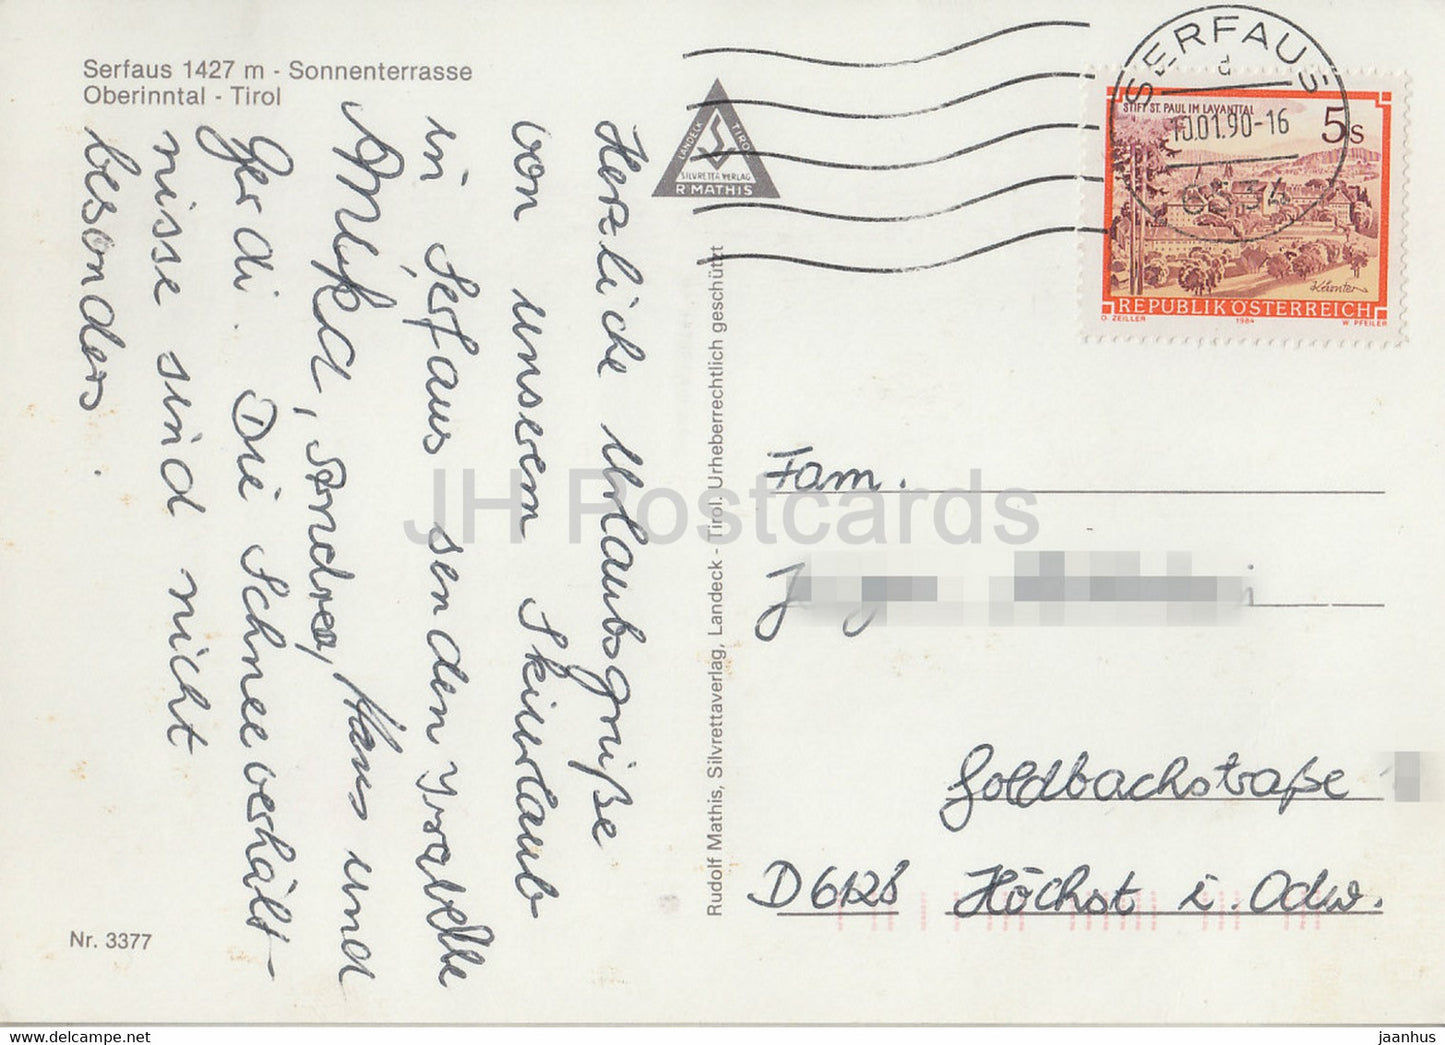 Serfaus 1427 m - Sonnenterrasse
Oberinntal - Tirol
Herzliche Urlaubsgrüße
von unserem Skiurlaub
in Serfaus senden Ysabelle
Anika, Andrea, Haus und
Gerdi. Die Schneeverhält-
nisse sind nicht
besonders.
Nr. 3377
LANDECK TIROL
SILVRETTA VERLAG
R MATHIS
Rudolf Mathis, Silvrettaverlag, Landeck - Tirol. Urheberrechtlich geschützt
SERFAUS
d
10.01.90-16
6534
STIFT ST. PAUL IM LAVANTTAL
5s
Kärnten
REPUBLIK ÖSTERREICH
O. ZEILLER 1984 W. PFEILER
Fam.
Goldbachstraße
D6128 Höchst i. Odw.
JH Postcards
www.delcampe.net
jaanhus